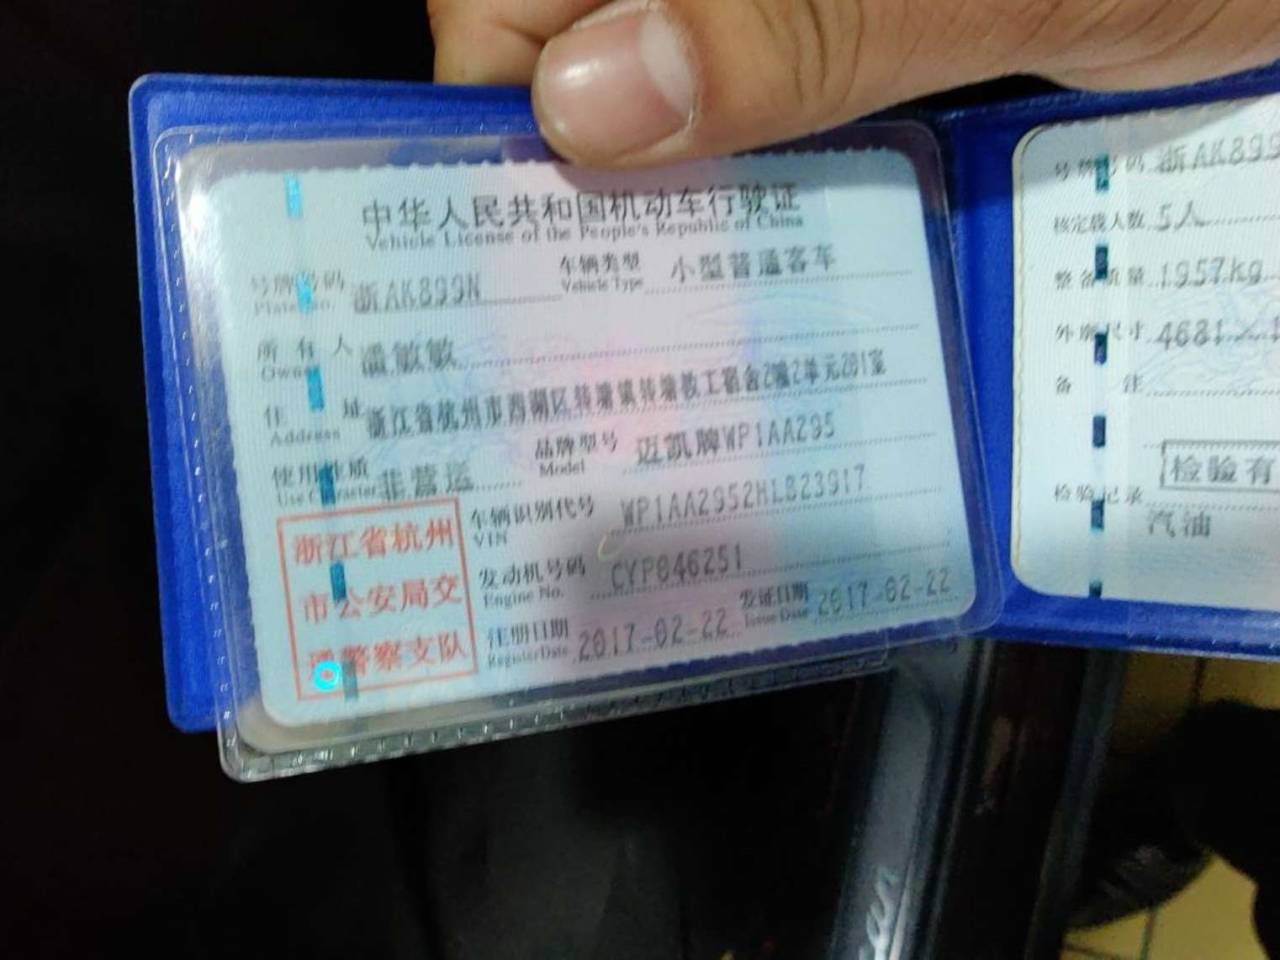 中华人民共和国机动车行驶证
Vehicle License of the People's Republic of China
号牌号码 浙AK899N 车辆类型 小型普通客车
Plate No. Vehicle Type
所有人 潘敏敏
Owner
住址 浙江省杭州市西湖区转塘镇转塘教工宿舍2幢2单元201室
Address
使用性质 非营运 品牌型号 迈凯牌WP1AA295
Use Character Model
车辆识别代号 WP1AA2952HLB23917
VIN
发动机号码 CYP046251
Engine No.
注册日期 2017-02-22 发证日期 2017-02-22
Register Date Issue Date
浙江省杭州
市公安局交
通警察支队
号牌号码 浙AK899
核定载人数 5人
整备质量 1957kg
外廓尺寸 4681×
备注
检验有
检验记录
汽油